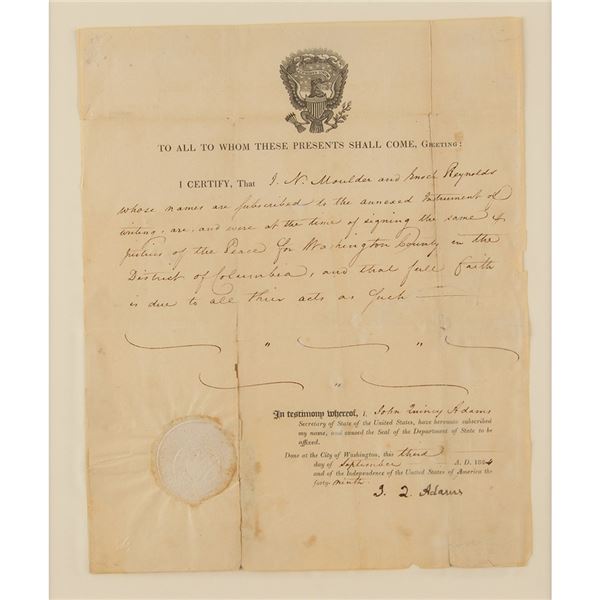 TO ALL TO WHOM THESE PRESENTS SHALL COME, GREETING:
I CERTIFY, That J. N. Moulder and Enoch Reynolds
whose names are subscribed to the annexed Instrument of
writing, are, and were at the time of signing the same
Justices of the Peace for Washington County in the
District of Columbia, and that full faith
is due to all their acts as such
In testimony whereof, I, John Quincy Adams
Secretary of State of the United States, have hereunto subscribed
my name, and caused the Seal of the Department of State to be
affixed.
Done at the City of Washington, this third
day of September A. D. 1824
and of the Independence of the United States of America the
forty-ninth.
J. Q. Adams